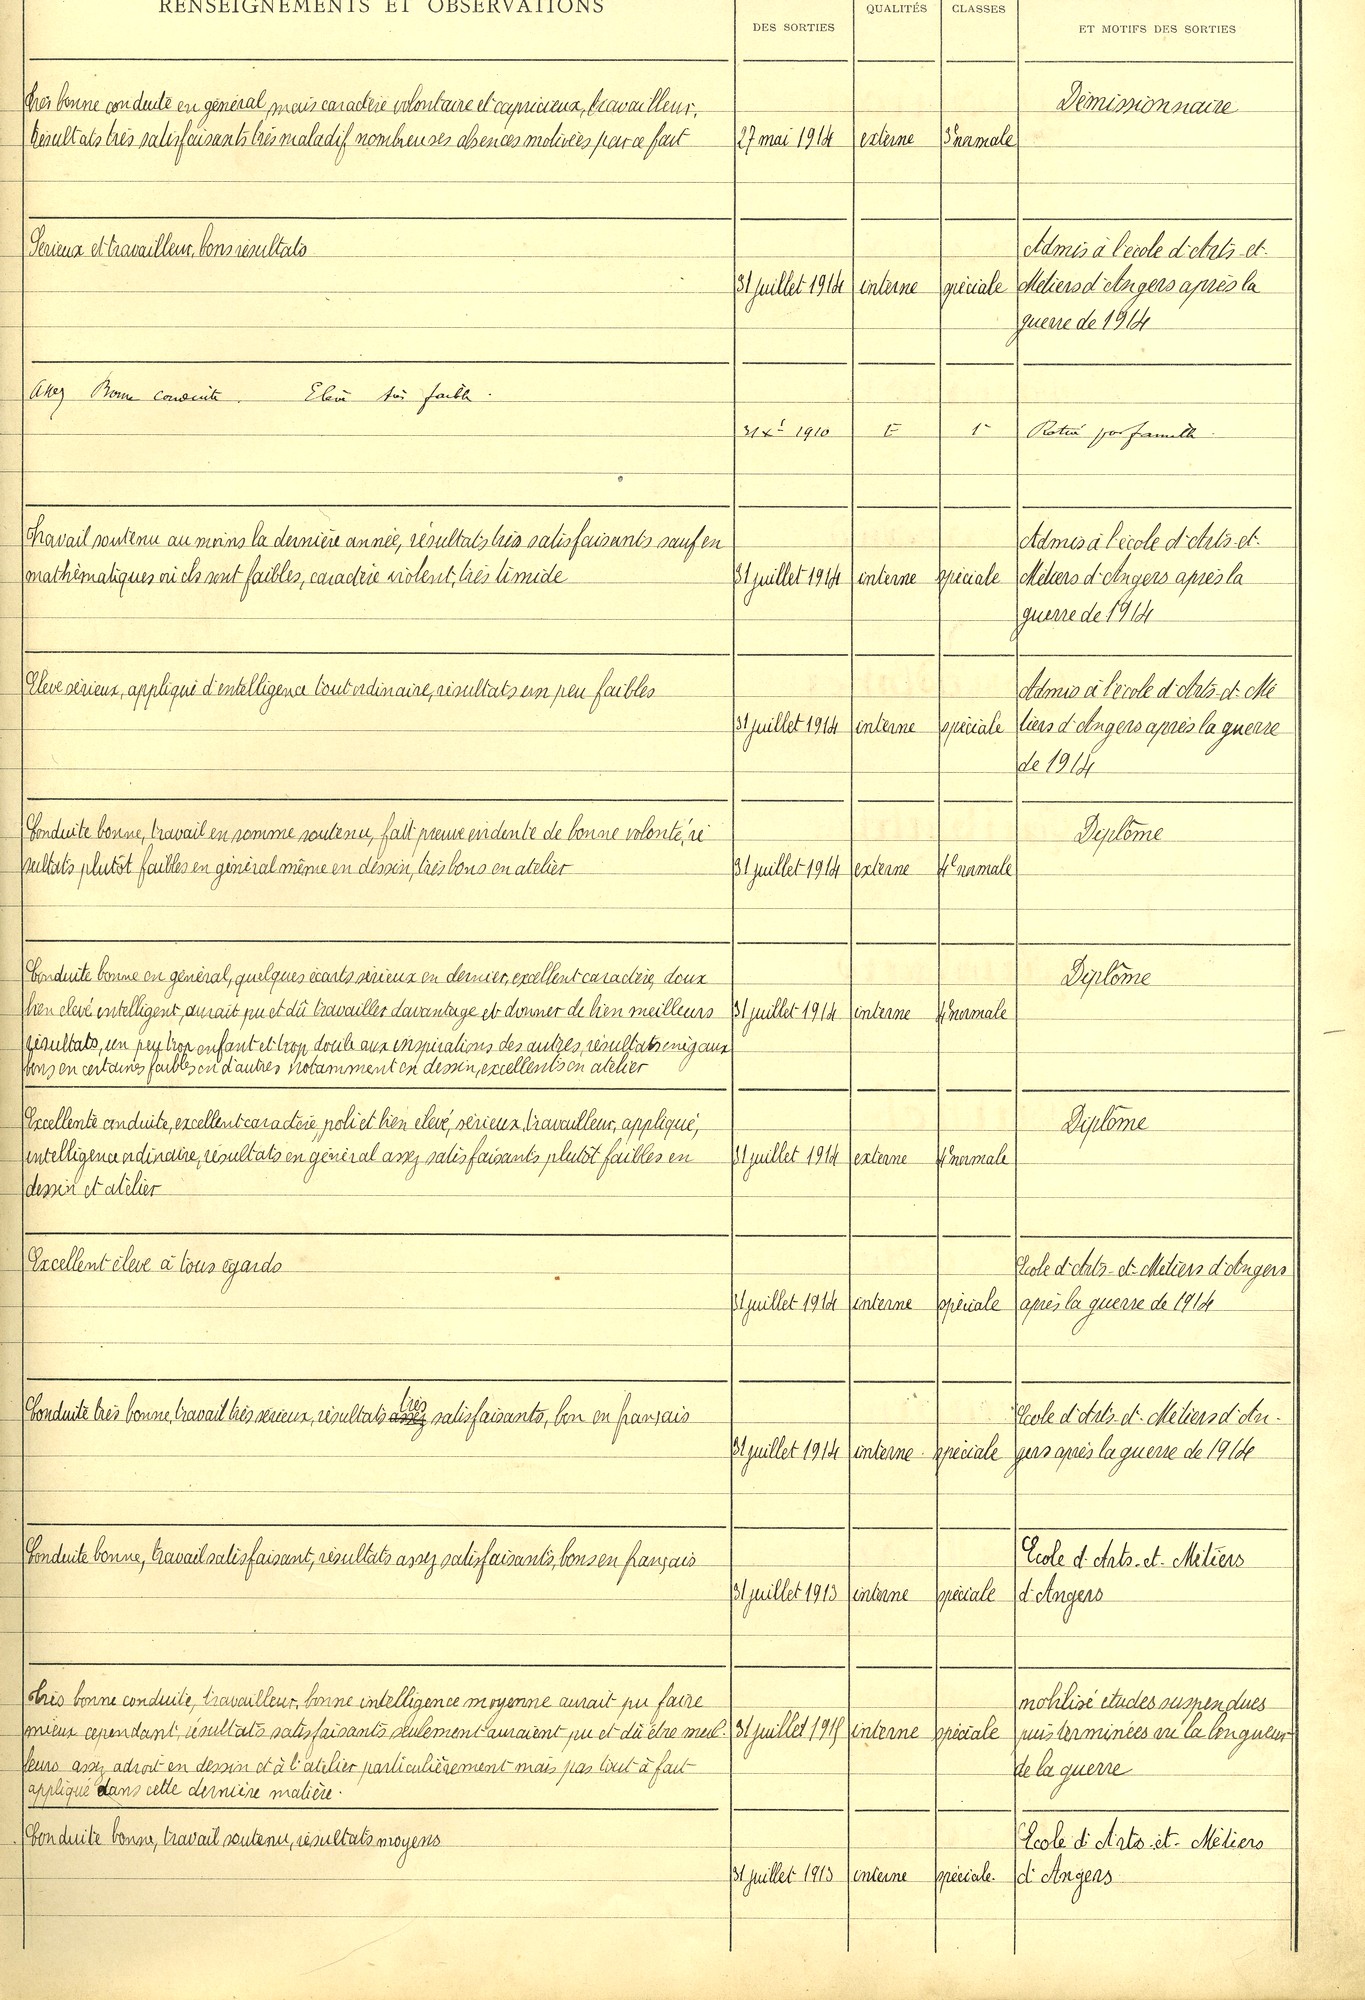 RENSEIGNEMENTS ET OBSERVATIONS
DES SORTIES
QUALITÉS
CLASSES
ET MOTIFS DES SORTIES
très bonne conduite en général, mais caractère volontaire et capricieux, travailleur,
résultats très satisfaisants très maladif nombreuses absences motivées par ce fait
27 mai 1914 externe 3e normale
Démissionnaire
Serieux et travailleur, bons résultats
31 juillet 1914 interne spéciale
Admis à l'école d'Arts-et-
Métiers d'Angers après la
guerre de 1914
Assez Bonne conduite. Elève très faible.
31 Xe 1910 E 1e Retiré par famille
Travail soutenu au moins la dernière année, résultats très satisfaisants sauf en
mathèmatiques où ils sont faibles, caractère violent, très timide
31 juillet 1914 interne spéciale
Admis à l'école d'Arts-et-
Métiers d'Angers après la
guerre de 1914
Elève sérieux, appliqué d'intelligence tout ordinaire, résultats un peu faibles
31 juillet 1914 interne spéciale
Admis à l'école d'Arts-et-Mé
tiers d'Angers après la guerre
de 1914
Conduite bonne, travail en somme soutenu, fait preuve evidente de bonne volonté, ré
sultats plutôt faibles en général même en dessin, très bons en atelier
31 juillet 1914 externe 4e normale
Diplôme
Conduite bonne en général, quelques écarts sérieux en dernier, excellent caractère, doux
bien elevé intelligent, aurait pu et dû travailler davantage et donner de bien meilleurs
résultats, un peu trop enfant et trop docile aux inspirations des autres, résultats inégaux
bons en certaines faibles en d'autres notamment en dessin, excellents en atelier
31 juillet 1914 interne 4e normale
Diplôme
Excellente conduite, excellent caractère, poli et bien élevé, sérieux, travailleur, appliqué,
intelligence ordinaire, résultats en général assez satisfaisants plutôt faibles en
dessin et atelier
31 juillet 1914 externe 4e normale
Diplôme
Excellent élève à tous égards
31 juillet 1914 interne spéciale
Ecole d'Arts-et-Métiers d'Angers
après la guerre de 1914
Conduite très bonne, travail très sérieux, résultats assez très satisfaisants, bon en français
31 juillet 1914 interne spéciale
Ecole d'Arts-et-Métiers d'An-
gers après la guerre de 1914
Conduite bonne, travail satisfaisant, résultats assez satisfaisants, bons en français
31 juillet 1913 interne spéciale
Ecole d'Arts-et-Métiers
d'Angers
très bonne conduite, travailleur, bonne intelligence moyenne aurait pu faire
mieux cependant, résultats satisfaisants seulement auraient pu et dû être meil-
leurs assez adroit en dessin et à l'atelier particulièrement mais pas tout à fait
appliqué dans cette dernière matière.
31 juillet 1915 interne spéciale
mobilisé etudes suspendues
puis terminées vu la longueur
de la guerre
Conduite bonne, travail soutenu, résultats moyens
31 juillet 1913 interne spéciale.
Ecole d'Arts-et-Métiers
d'Angers